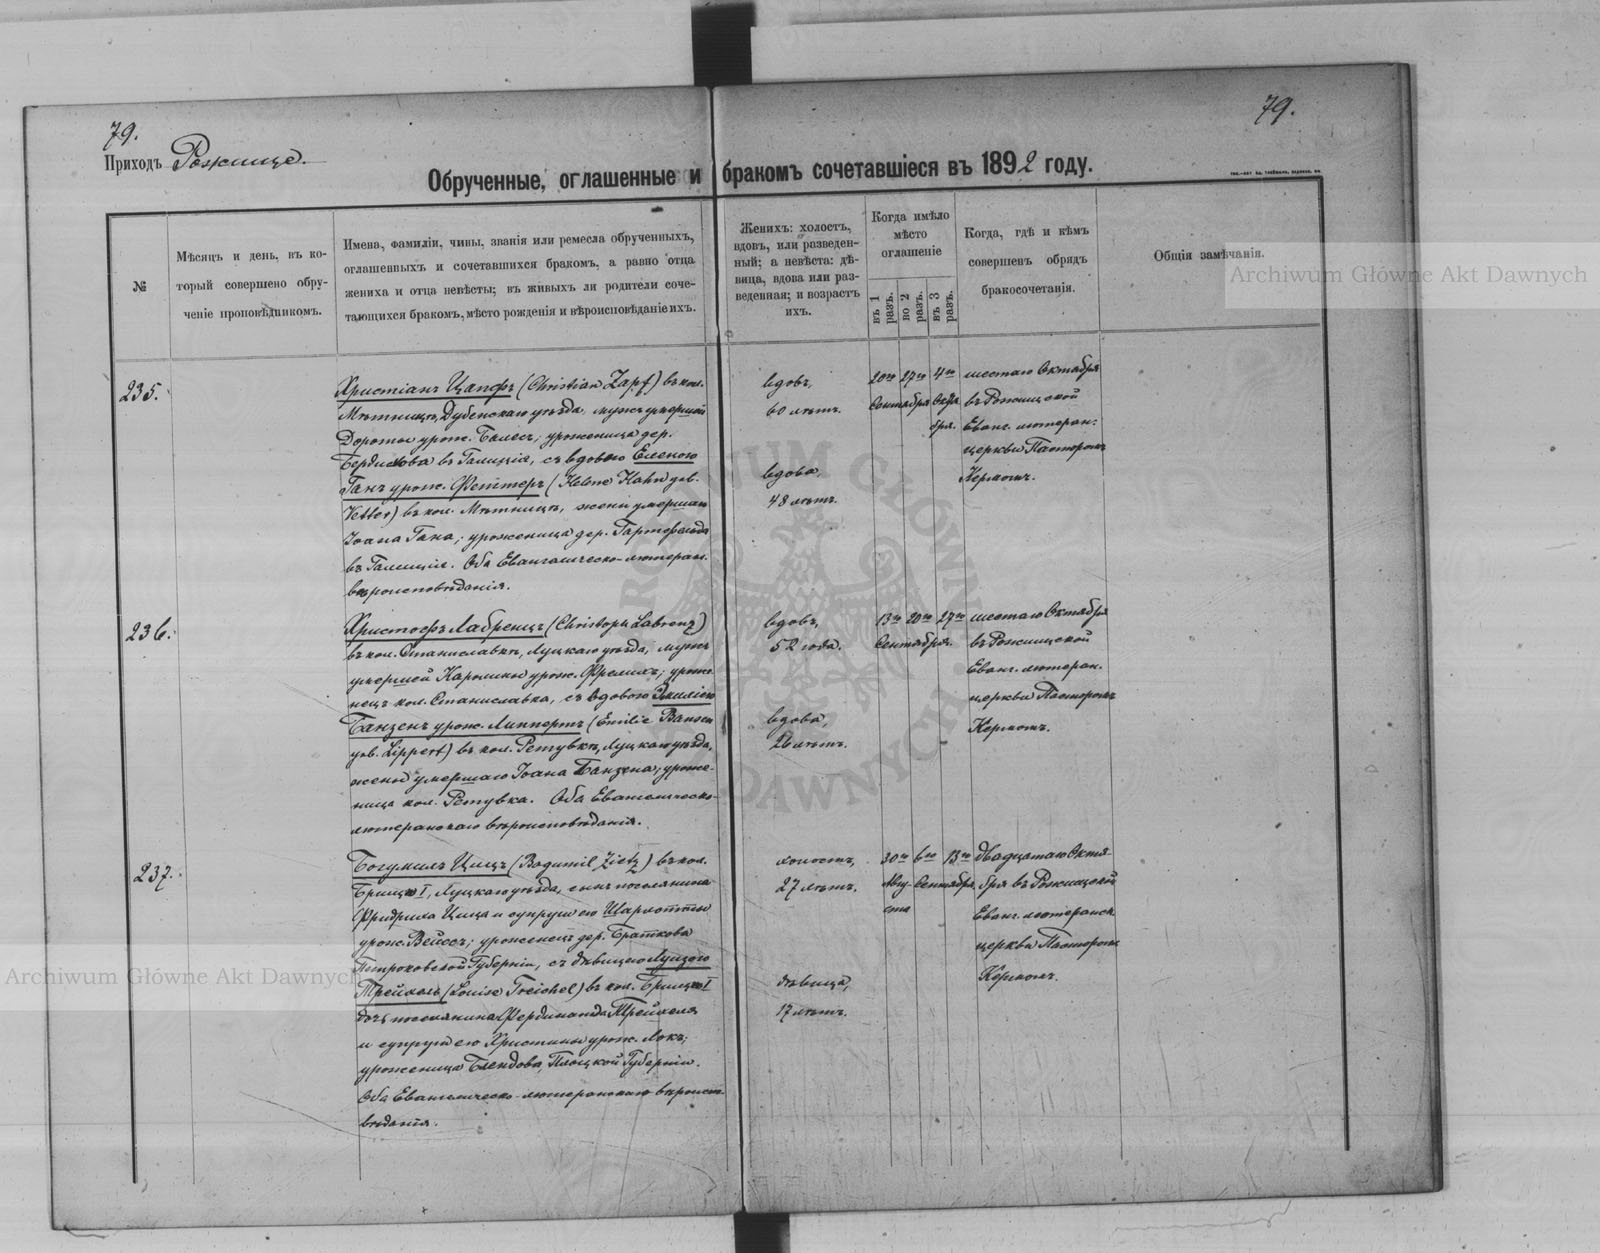 79.
79.
Приходъ Рожище.
Обрученные, оглашенные и бракомъ сочетавшіеся въ 1892 году.
№
Мѣсяцъ и день, въ ко-
торый совершено обру-
ченіе проповѣдникомъ.
Имена, фамиліи, чины, званія или ремесла обрученныхъ,
оглашенныхъ и сочетавшихся бракомъ, а равно отца
жениха и отца невѣсты; въ живыхъ ли родители соче-
тающихся бракомъ, мѣсто рожденія и вѣроисповѣданіе ихъ.
Женихъ: холостъ,
вдовъ, или разведен-
ный; а невѣста: дѣ-
вица, вдова или раз-
веденная; и возрастъ
ихъ.
Когда имѣло
мѣсто
оглашеніе
въ 1 разъ.
во 2 разъ.
въ 3 разъ.
Когда, гдѣ и кѣмъ
совершенъ обрядъ
бракосочетанія.
Общія замѣчанія.
235.
Христіанъ Цапфъ (Christian Zapf) въ кол.
Мѣтницѣ, Дубенскаго уѣзда, мужъ умершей
Доротеи урож. ; уроженецъ дер.
въ Галиціи, съ вдовою Еленою
Ганъ урож. Феттеръ (Helene Hahn geb.
Vetter) въ кол. Мѣтницѣ, жены умершаго
Іоана Гана; уроженица дер. Гартфельда
въ Галиціи. Оба Евангелическо-лютеран.
вѣроисповѣданія.
вдовъ,
60 лѣтъ.
вдова,
48 лѣтъ.
20го 27го 4го
Сентября Октя
бря.
шестаго Октября
въ Рожищской
Еванг. лютеран.
церкви Пасторомъ
Кермомъ.
236.
Христофъ Лабренцъ (Christoph Labrenz)
въ кол. Станиславкѣ, Луцкаго уѣзда, мужъ
умершей Каролины урож. ; уроже-
нецъ кол. Станиславка, съ вдовою Эмиліею
Банзенъ урож. Липпертъ (Emilie Bansen
geb. Lippert) въ кол. Ретувкѣ, Луцкаго уѣзда,
жены умершаго Іоана Банзена; уроже-
ница кол. Ретувка. Оба Евангелическо-
лютеранскаго вѣроисповѣданія.
вдовъ,
52 года.
вдова,
26 лѣтъ.
13го 20го 27го
Сентября.
шестаго Октября
въ Рожищской
Еванг. лютеран.
церкви Пасторомъ
Кермомъ.
237.
Богумилъ Цицъ (Bogumil Zietz) въ кол.
Брище I, Луцкаго уѣзда, сынъ поселянина
Фридриха Цица и супруги его Шарлотты
урож. Вейссъ; уроженецъ дер. Браткова
Петроковской Губерніи, съ дѣвицею Луизою
Трейхель (Louise Treichel) въ кол. Брище I
дочь поселянина Фердинанда Трейхеля
и супруги его Христины урож. Локъ;
уроженица Блендова, Плоцкой Губерніи.
Оба Евангелическо-лютеранскаго вѣроиспо-
вѣданія.
холостъ,
27 лѣтъ.
дѣвица,
17 лѣтъ.
30го 6го 13го
Авгу- Сентября.
ста
двадцатаго Октя-
бря въ Рожищской
Еванг. лютеранск.
церкви Пасторомъ
Кермомъ.
Archiwum Główne Akt Dawnych
Archiwum Główne Akt Dawnych